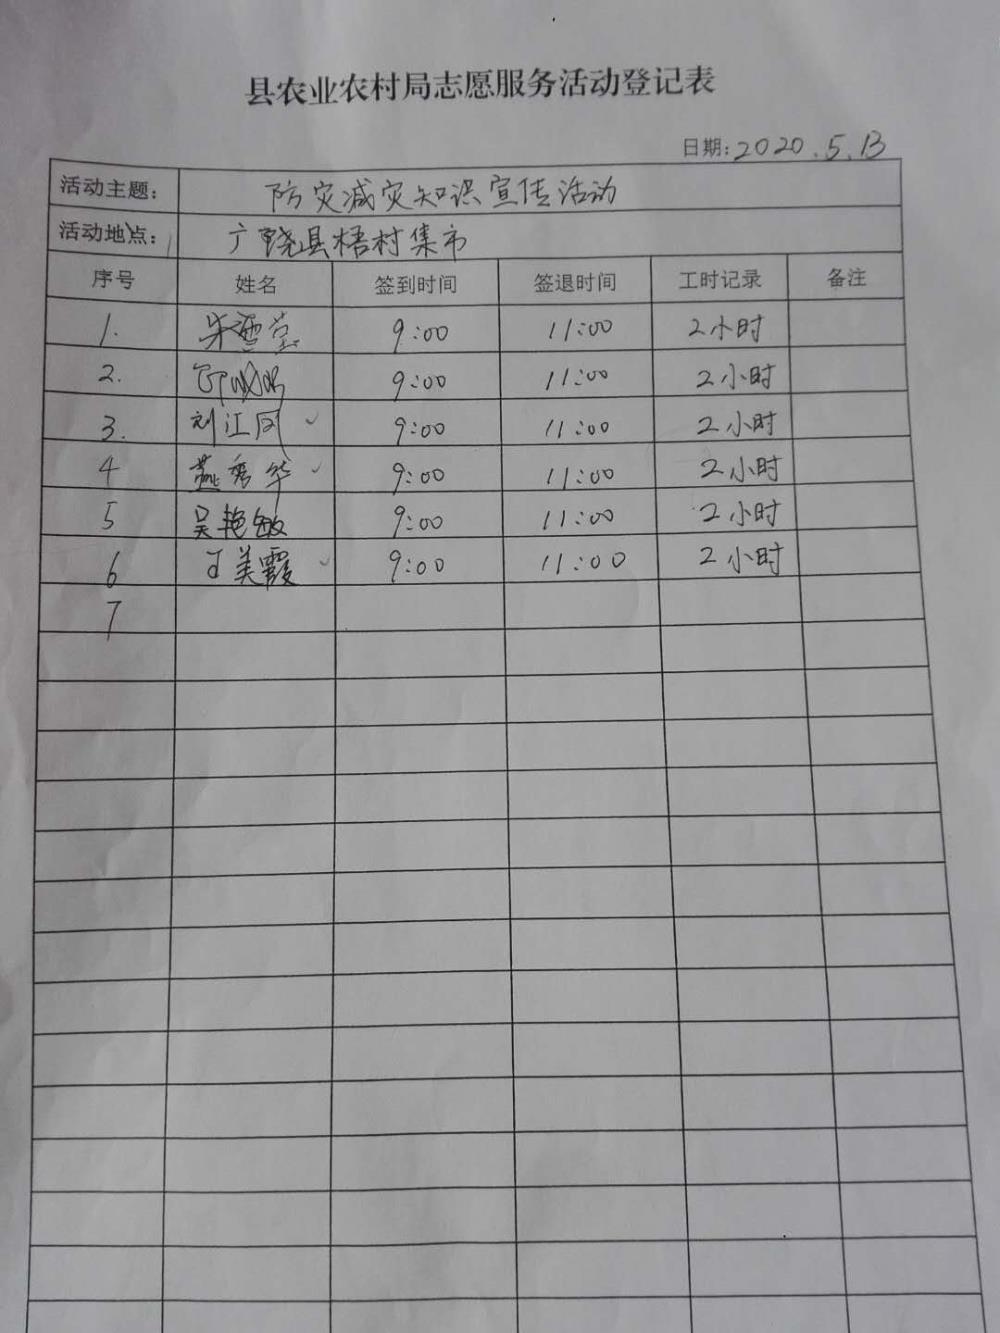 县农业农村局志愿服务活动登记表
日期:2020.5.13
活动主题: 防灾减灾知识宣传活动
活动地点: 广饶县梧村集市
序号 姓名 签到时间 签退时间 工时记录 备注
1. 9:00 11:00 2小时
2. 9:00 11:00 2小时
3. 刘江风 9:00 11:00 2小时
4 燕秀华 9:00 11:00 2小时
5 吴艳敏 9:00 11:00 2小时
6 王美霞 9:00 11:00 2小时
7